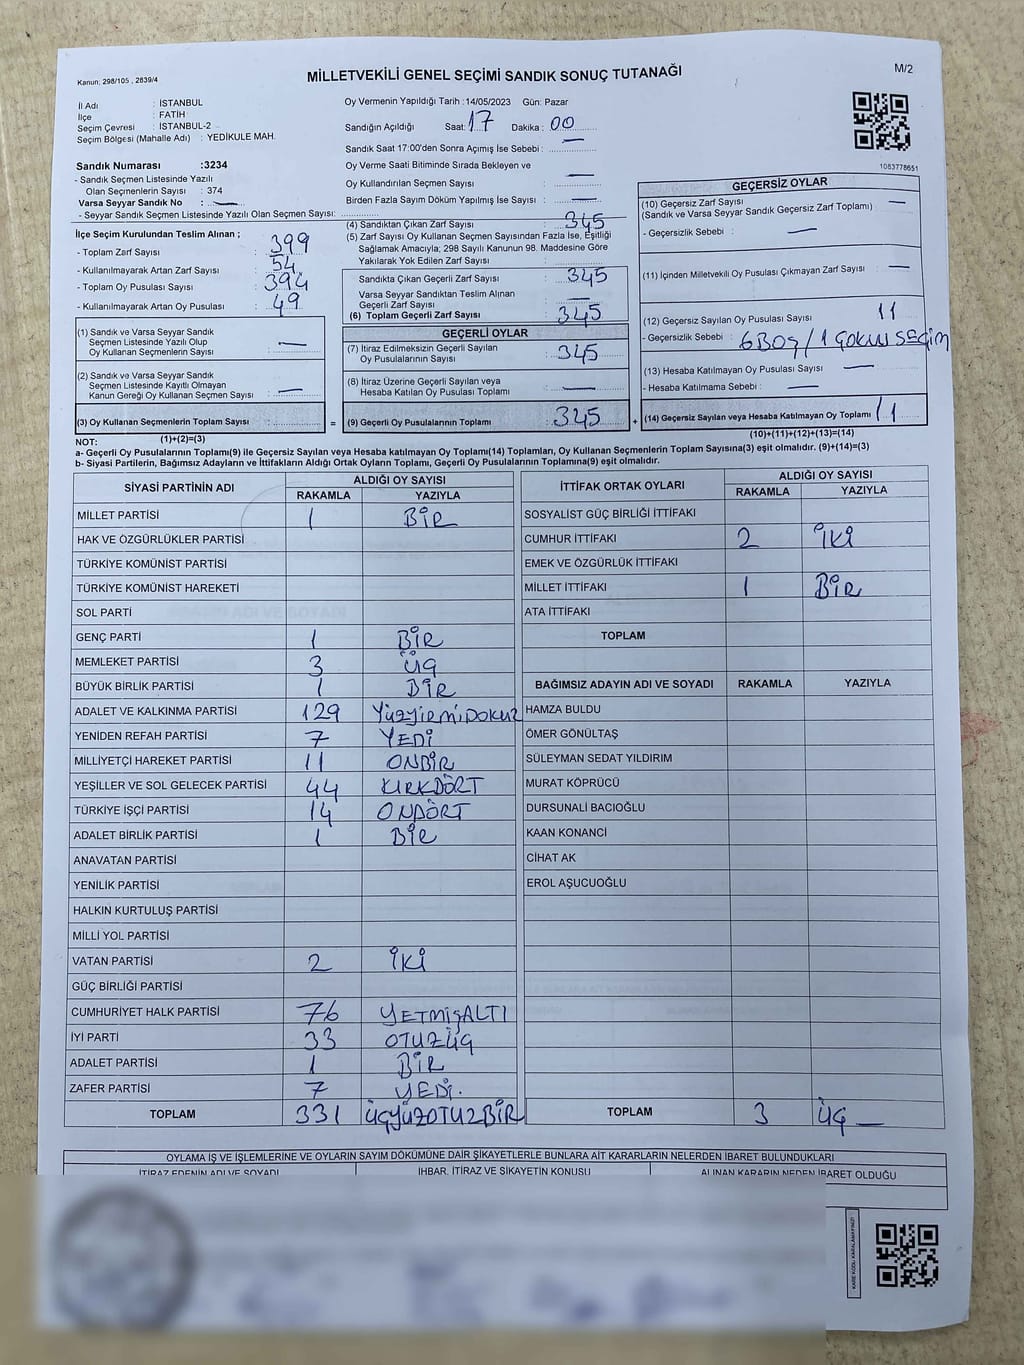 Kanun: 298/105 , 2839/4
MİLLETVEKİLİ GENEL SEÇİMİ SANDIK SONUÇ TUTANAĞI
M/2
İl Adı : İSTANBUL
İlçe : FATİH
Seçim Çevresi : İSTANBUL-2
Seçim Bölgesi (Mahalle Adı) : YEDİKULE MAH.
Sandık Numarası :3234
- Sandık Seçmen Listesinde Yazılı
Olan Seçmenlerin Sayısı : 374
Varsa Seyyar Sandık No : —
- Seyyar Sandık Seçmen Listesinde Yazılı Olan Seçmen Sayısı:
Oy Vermenin Yapıldığı Tarih :14/05/2023 Gün: Pazar
Sandığın Açıldığı Saat: 17 Dakika : 00
Sandık Saat 17:00'den Sonra Açımış İse Sebebi : —
Oy Verme Saati Bitiminde Sırada Bekleyen ve
Oy Kullandırılan Seçmen Sayısı : —
Birden Fazla Sayım Döküm Yapılmış İse Sayısı : —
1083778651
İlçe Seçim Kurulundan Teslim Alınan ;
- Toplam Zarf Sayısı : 399
- Kullanılmayarak Artan Zarf Sayısı : 54
- Toplam Oy Pusulası Sayısı : 394
- Kullanılmayarak Artan Oy Pusulası : 49
(1) Sandık ve Varsa Seyyar Sandık
Seçmen Listesinde Yazılı Olup
Oy Kullanan Seçmenlerin Sayısı : —
(2) Sandık ve Varsa Seyyar Sandık
Seçmen Listesinde Kayıtlı Olmayan
Kanun Gereği Oy Kullanan Seçmen Sayısı : —
(3) Oy Kullanan Seçmenlerin Toplam Sayısı :
(1)+(2)=(3)
=
(4) Sandıktan Çıkan Zarf Sayısı : 345
(5) Zarf Sayısı Oy Kullanan Seçmen Sayısından Fazla İse, Eşitliği
Sağlamak Amacıyla; 298 Sayılı Kanunun 98. Maddesine Göre
Yakılarak Yok Edilen Zarf Sayısı :
Sandıkta Çıkan Geçerli Zarf Sayısı : 345
Varsa Seyyar Sandıktan Teslim Alınan
Geçerli Zarf Sayısı : —
(6) Toplam Geçerli Zarf Sayısı : 345
GEÇERLİ OYLAR
(7) İtiraz Edilmeksizin Geçerli Sayılan
Oy Pusulalarının Sayısı : 345
(8) İtiraz Üzerine Geçerli Sayılan veya
Hesaba Katılan Oy Pusulası Toplamı : —
(9) Geçerli Oy Pusulalarının Toplamı : 345
+
GEÇERSİZ OYLAR
(10) Geçersiz Zarf Sayısı : —
(Sandık ve Varsa Seyyar Sandık Geçersiz Zarf Toplamı)
- Geçersizlik Sebebi : —
(11) İçinden Milletvekili Oy Pusulası Çıkmayan Zarf Sayısı : —
(12) Geçersiz Sayılan Oy Pusulası Sayısı : 11
- Geçersizlik Sebebi : 6 BOŞ / 1 ÇOKLU SEÇİM
(13) Hesaba Katılmayan Oy Pusulası Sayısı : —
- Hesaba Katılmama Sebebi : —
(14) Geçersiz Sayılan veya Hesaba Katılmayan Oy Toplamı : 11
(10)+(11)+(12)+(13)=(14)
NOT:
a- Geçerli Oy Pusulalarının Toplamı(9) ile Geçersiz Sayılan veya Hesaba Katılmayan Oy Toplamı(14) Toplamları, Oy Kullanan Seçmenlerin Toplam Sayısına(3) eşit olmalıdır. (9)+(14)=(3)
b- Siyasi Partilerin, Bağımsız Adayların ve İttifakların Aldığı Ortak Oyların Toplamı, Geçerli Oy Pusulalarının Toplamına(9) eşit olmalıdır.
SİYASİ PARTİNİN ADI ALDIĞI OY SAYISI
RAKAMLA YAZIYLA
MİLLET PARTİSİ 1 BİR
HAK VE ÖZGÜRLÜKLER PARTİSİ
TÜRKİYE KOMÜNİST PARTİSİ
TÜRKİYE KOMÜNİST HAREKETİ
SOL PARTİ
GENÇ PARTİ 1 BİR
MEMLEKET PARTİSİ 3 ÜÇ
BÜYÜK BİRLİK PARTİSİ 1 BİR
ADALET VE KALKINMA PARTİSİ 129 YÜZYİRMİDOKUZ
YENİDEN REFAH PARTİSİ 7 YEDİ
MİLLİYETÇİ HAREKET PARTİSİ 11 ONBİR
YEŞİLLER VE SOL GELECEK PARTİSİ 44 KIRKDÖRT
TÜRKİYE İŞÇİ PARTİSİ 14 ONDÖRT
ADALET BİRLİK PARTİSİ 1 BİR
ANAVATAN PARTİSİ
YENİLİK PARTİSİ
HALKIN KURTULUŞ PARTİSİ
MİLLİ YOL PARTİSİ
VATAN PARTİSİ 2 İKİ
GÜÇ BİRLİĞİ PARTİSİ
CUMHURİYET HALK PARTİSİ 76 YETMİŞALTI
İYİ PARTİ 33 OTUZÜÇ
ADALET PARTİSİ 1 BİR
ZAFER PARTİSİ 7 YEDİ.
TOPLAM 331 ÜÇYÜZOTUZBİR
İTTİFAK ORTAK OYLARI ALDIĞI OY SAYISI
RAKAMLA YAZIYLA
SOSYALİST GÜÇ BİRLİĞİ İTTİFAKI
CUMHUR İTTİFAKI 2 İKİ
EMEK VE ÖZGÜRLÜK İTTİFAKI
MİLLET İTTİFAKI 1 BİR
ATA İTTİFAKI
TOPLAM
BAĞIMSIZ ADAYIN ADI VE SOYADI RAKAMLA YAZIYLA
HAMZA BULDU
ÖMER GÖNÜLTAŞ
SÜLEYMAN SEDAT YILDIRIM
MURAT KÖPRÜCÜ
DURSUNALİ BACIOĞLU
KAAN KONANCİ
CİHAT AK
EROL AŞUCUOĞLU
TOPLAM 3 ÜÇ —
OYLAMA İŞ VE İŞLEMLERİNE VE OYLARIN SAYIM DÖKÜMÜNE DAİR ŞİKAYETLERLE BUNLARA AİT KARARLARIN NELERDEN İBARET BULUNDUKLARI
İTİRAZ EDENİN ADI VE SOYADI İHBAR, İTİRAZ VE ŞİKAYETİN KONUSU ALINAN KARARIN NEDEN İBARET OLDUĞU
KARE KODU KARALAMAYINIZ!